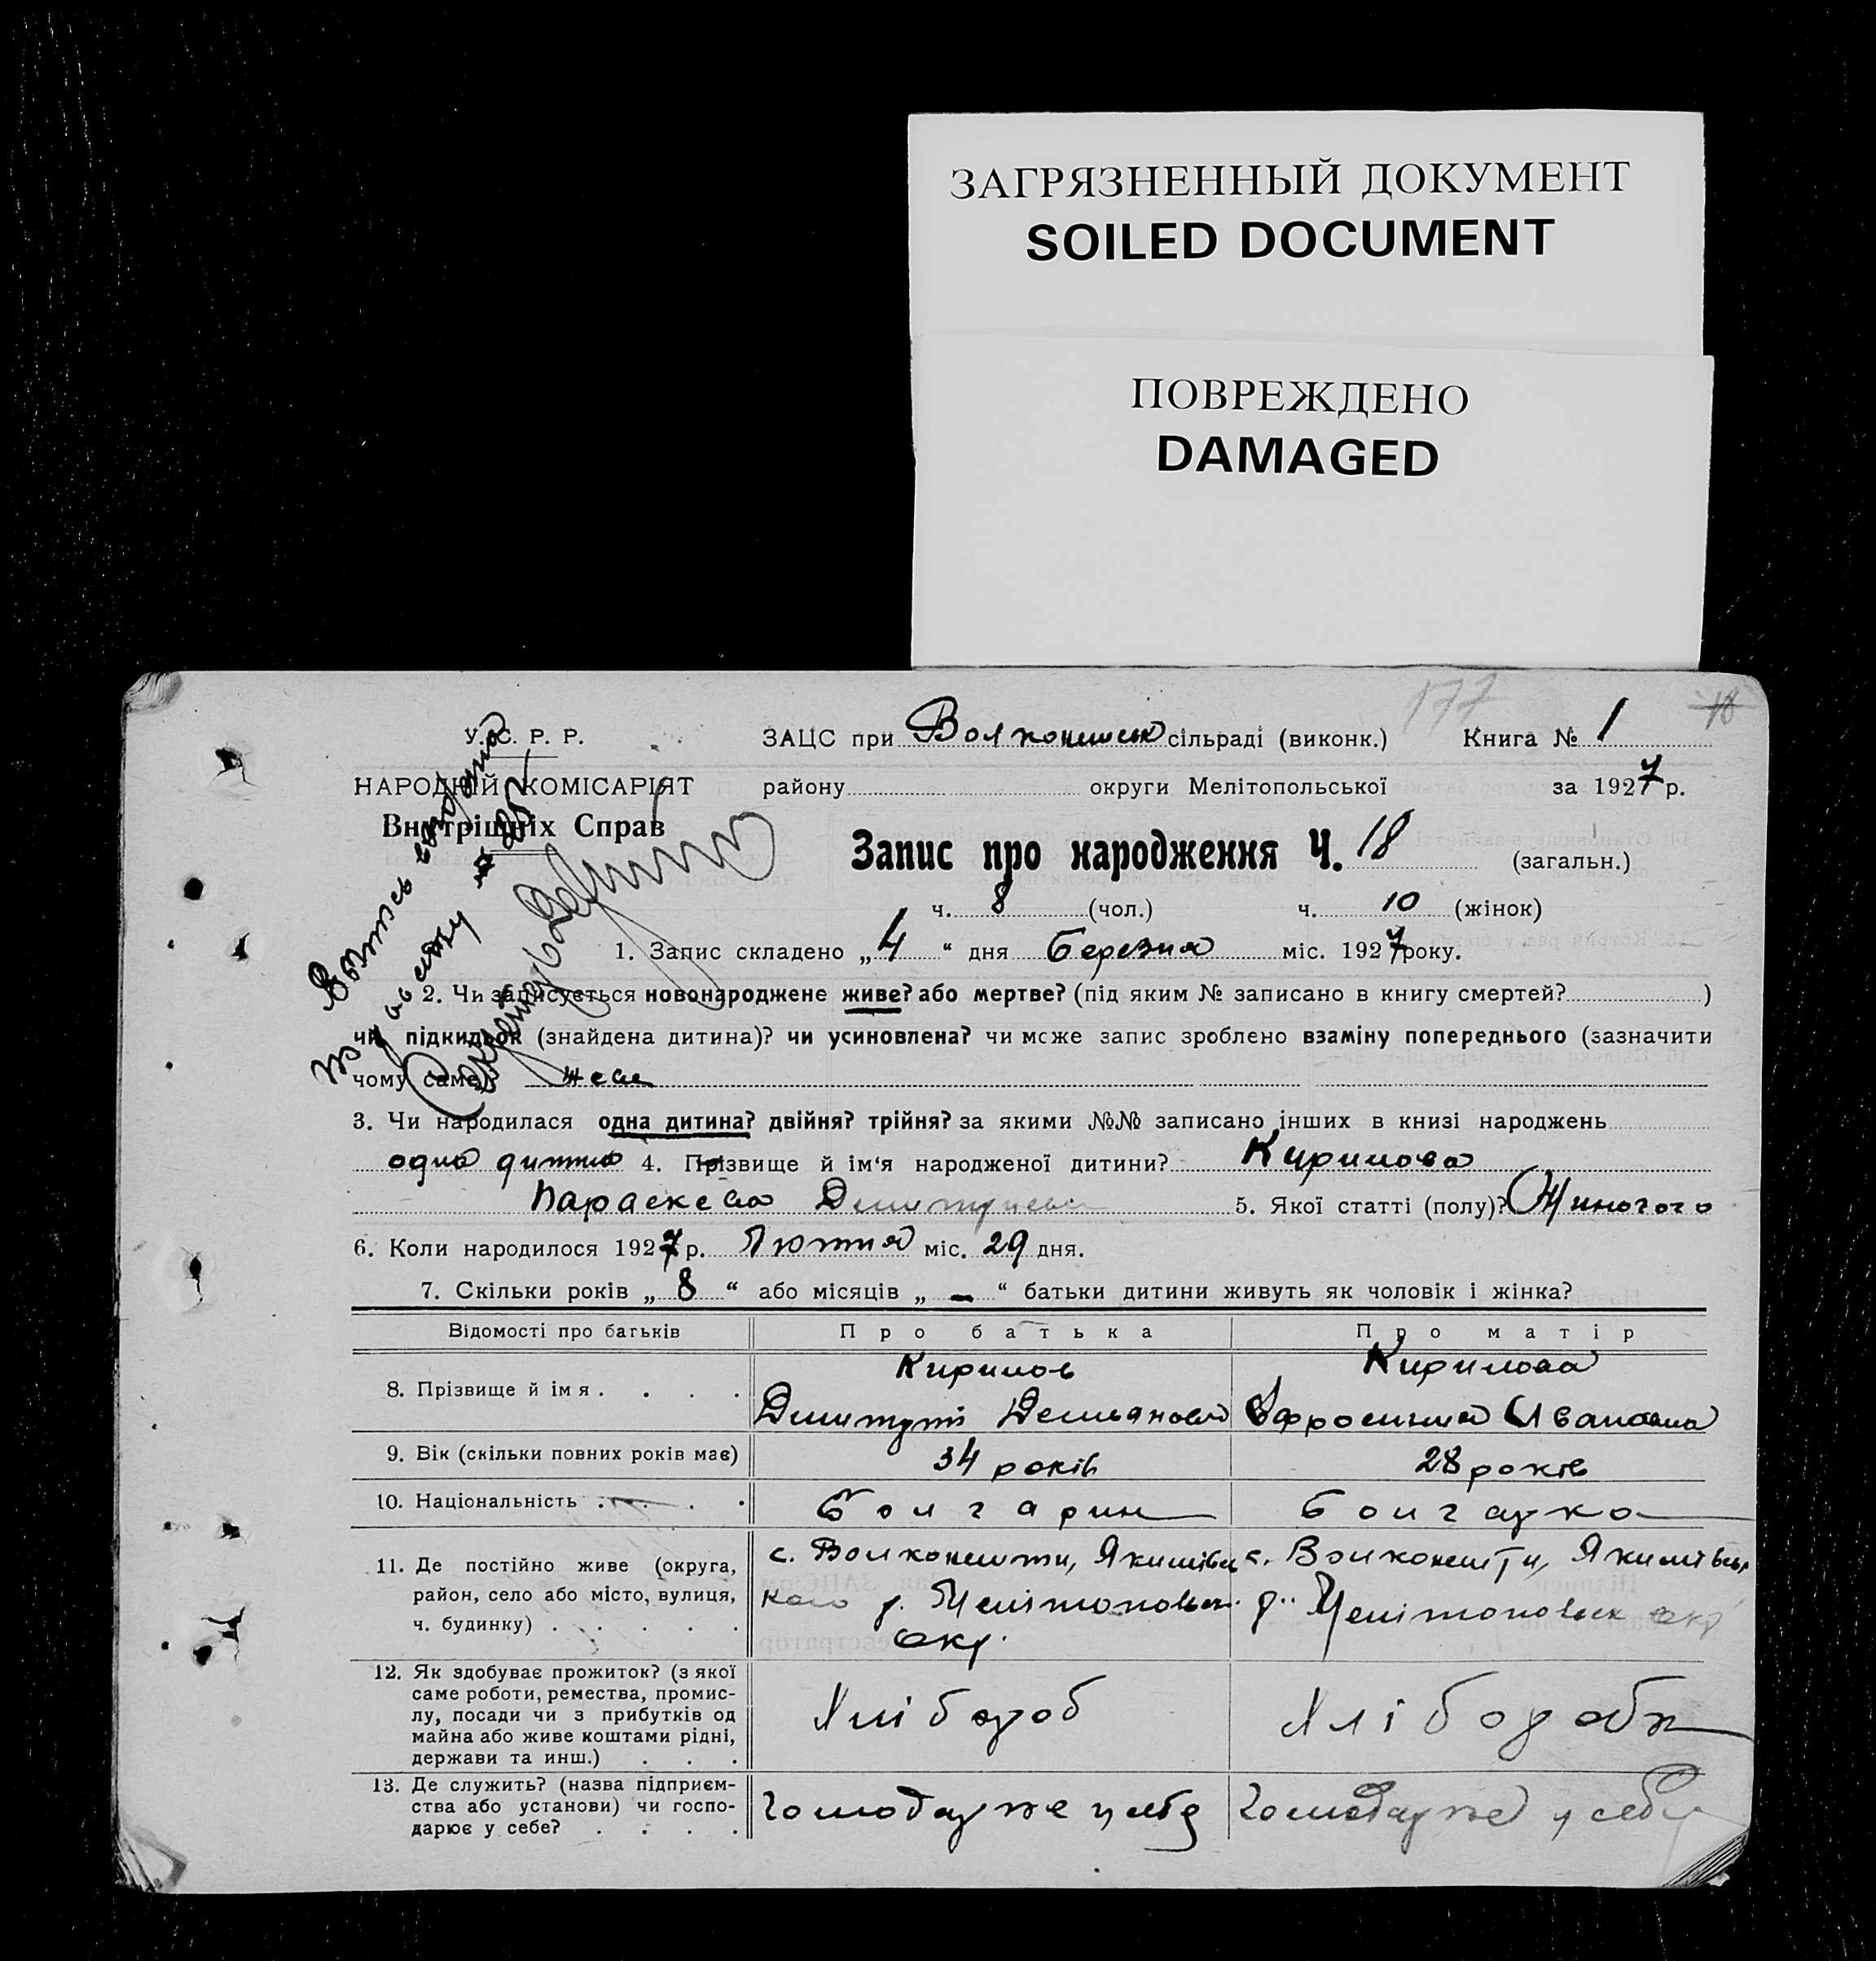 ЗАГРЯЗНЕННЫЙ ДОКУМЕНТ
SOILED DOCUMENT
ПОВРЕЖДЕНО
DAMAGED
177 18
У. С. Р. Р.
НАРОДНІЙ КОМІСАРІЯТ
Внутрішніх Справ
ЗАЦС при Волконешськ сільраді (виконк.) Книга № 1
району округи Мелітопольської за 1927 р.
Запис про народження Ч. 18 (загальн.)
ч. 8 (чол.) ч. 10 (жінок)
1. Запис складено „4“ дня Березня міс. 1927 року.
2. Чи записується новонароджене живе? або мертве? (під яким № записано в книгу смертей? )
чи підкидьок (знайдена дитина)? чи усиновлена? чи може запис зроблено взаміну попереднього (зазначити
чому саме) живе
3. Чи народилася одна дитина? двійня? трійня? за якими №№ записано інших в книзі народжень
одна дитина 4. Прізвище й ім‘я народженої дитини? Кирилова
Параскева Дмитриева 5. Якої статті (полу)? Жиночого
6. Коли народилося 1927 р. Лютня міс. 29 дня.
7. Скільки років „8“ або місяців „—“ батьки дитини живуть як чоловік і жінка?
Відомості про батьків Про батька Про матір
8. Прізвище й імя . . . . Кирилов Дмитрий Демьянович Кирилова Эфросиния Ивановна
9. Вік (скільки повних років має) 34 років 28 років
10. Національність . . . . Болгарин Болгарка
11. Де постійно живе (округа,
район, село або місто, вулиця,
ч. будинку) . . . . .
с. Волконешти, Якимівсь
кого р. Мелітопольськ.
окр.
с. Волконешти, Якимівськ
р. Мелітопольськ окр
12. Як здобуває прожиток? (з якої
саме роботи, ремества, промис-
лу, посади чи з прибутків од
майна або живе коштами рідні,
держави та инш.) . . .
Хлібороб
Хлібороб
13. Де служить? (назва підприєм-
ства або установи) чи госпо-
дарює у себе? . . . .
Господарює у себе
Господарює у себе